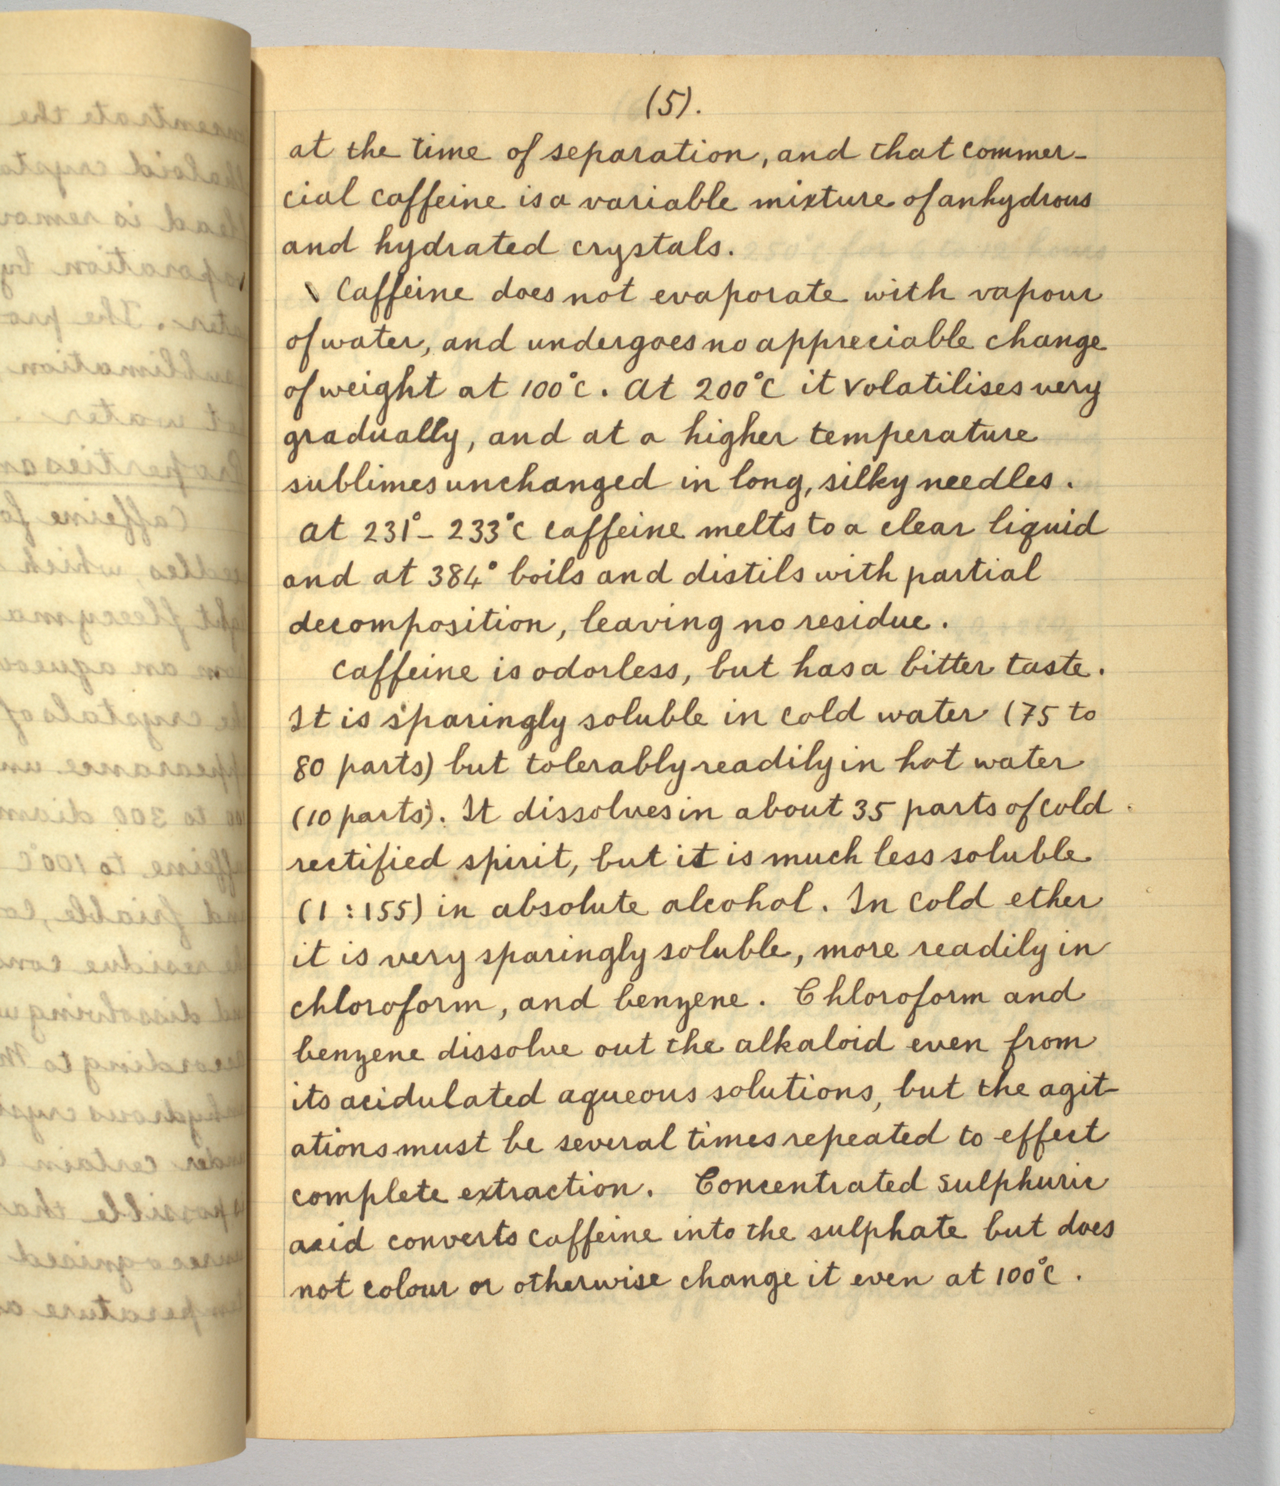 (5).
at the time of separation, and that commer-
cial caffeine is a variable mixture of anhydrous
and hydrated crystals.
\ Caffeine does not evaporate with vapour
of water, and undergoes no appreciable change
of weight at 100°C. At 200°C it volatilises very
gradually, and at a higher temperature
sublimes unchanged in long, silky needles.
At 231°- 233°C caffeine melts to a clear liquid
and at 384° boils and distils with partial
decomposition, leaving no residue.
Caffeine is odorless, but has a bitter taste.
It is sparingly soluble in cold water (75 to
80 parts) but tolerably readily in hot water
(10 parts). It dissolves in about 35 parts of cold
rectified spirit, but it is much less soluble
(1:155) in absolute alcohol. In cold ether
it is very sparingly soluble, more readily in
chloroform, and benzene. Chloroform and
benzene dissolve out the alkaloid even from
its acidulated aqueous solutions, but the agit-
ations must be several times repeated to effect
complete extraction. Concentrated sulphuric
acid converts caffeine into the sulphate but does
not colour or otherwise change it even at 100°C.